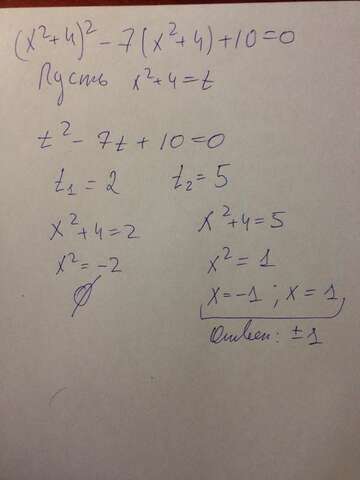 (x²+4)² - 7(x²+4) + 10 = 0
Пусть x²+4 = t
t² - 7t + 10 = 0
t₁ = 2 t₂ = 5
x²+4 = 2 x²+4 = 5
x² = -2 x² = 1
∅ x = -1 ; x = 1
Ответ: ± 1